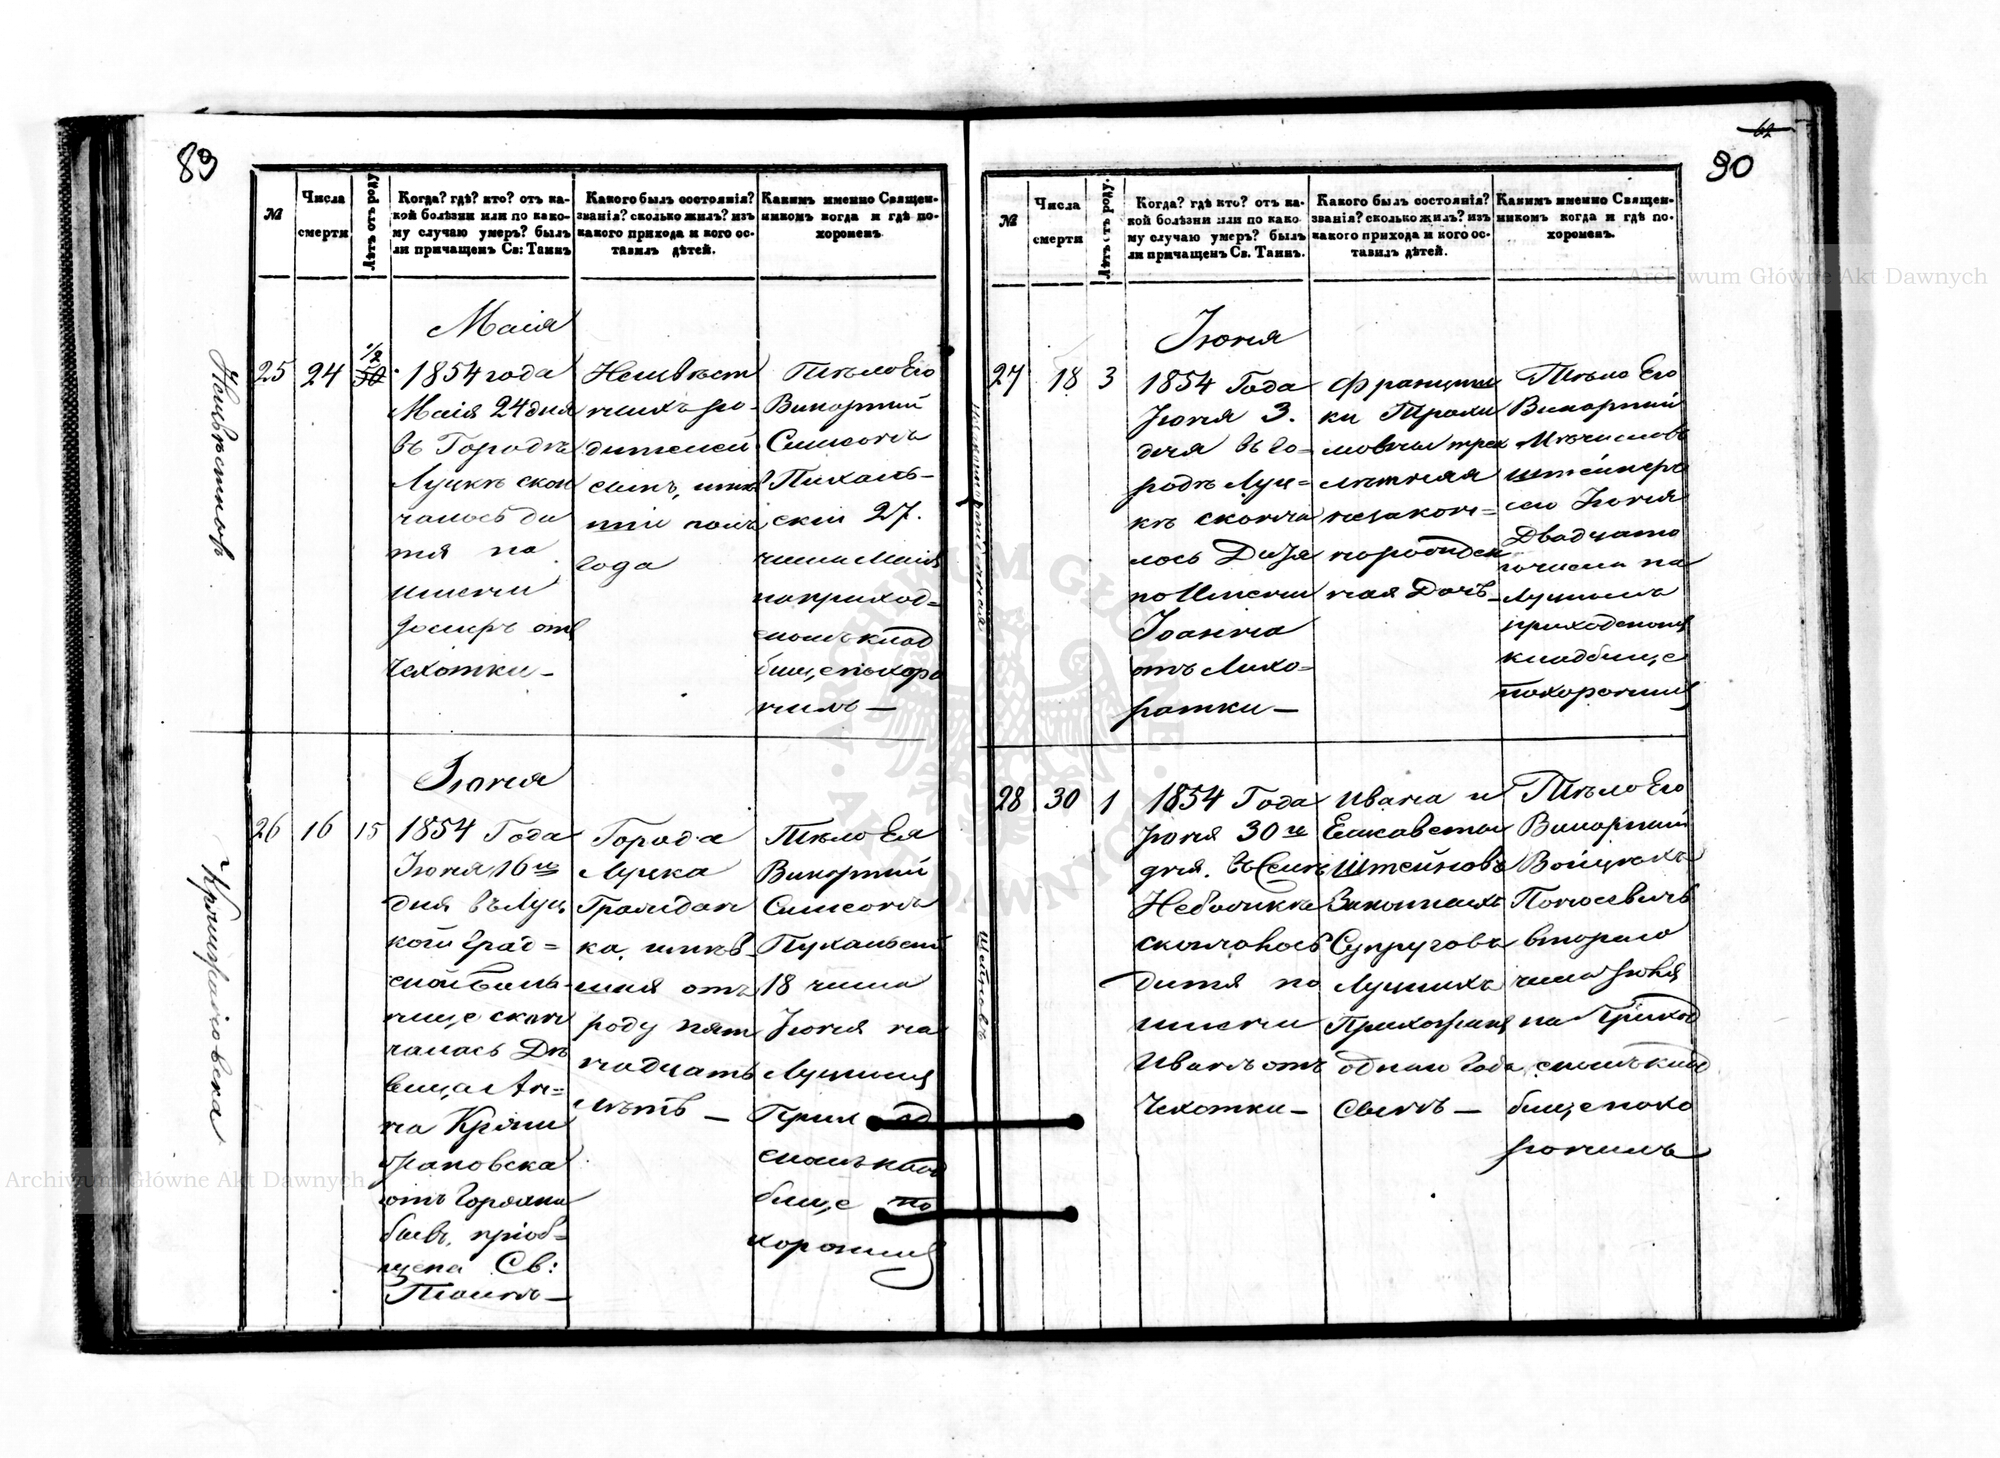 89
№
Числа
смерти
Лѣтъ отъ роду
Когда? гдѣ? кто? отъ ка-
кой болѣзни или по како-
му случаю умеръ? былъ
ли причащенъ Св: Таинъ
Какого былъ состоянія?
званія? сколько жилъ? изъ
какого прихода и кого ос-
тавилъ дѣтей.
Какимъ именно Священ-
никомъ когда и гдѣ по-
хороненъ.
Маія
25
24
1/2
50
1854 года
Маія 24 дня
въ Городѣ
Луцкѣ скон
чалось ди
тя по
имени
отъ
Чахотки —
Неизвѣст
ныхъ ро-
дителей
сынъ,
полъ
года
Тѣло Его
Викарный
Симеонъ
скій 27.
числа Маія
на приход-
скомъ клад
бище похоро
нилъ —
Іюня
26
16
15
1854 Года
Іюня 16го
дня въ Луц
кой Град-
ской Боль-
нице скон
чалась Дѣ
вица Ан-
на
отъ
приоб-
щена Св:
Таинъ —
Города
Луцка
Граждан
ка, имѣв
шая отъ
роду пят
надцать
лѣтъ —
Тѣло Ея
Викарный
Симеонъ
18 числа
Іюня на
Луцкомъ
Приход
скомъ клад
бище по
хоронилъ
62
90
№
Числа
смерти
Лѣтъ отъ роду.
Когда? гдѣ кто? отъ ка-
кой болѣзни или по како
му случаю умеръ? былъ
ли причащенъ Св. Таинъ.
Какого былъ состоянія?
званія? сколько жилъ? изъ
какого прихода и кого ос-
тавилъ дѣтей.
Какимъ именно Священ-
никомъ когда и гдѣ по-
хороненъ.
Іюня
27
18
3
1854 Года
Іюня 3.
дня въ Го-
родѣ Луц-
кѣ сконча
лось Дитя
по Имени
Іоанна
отъ Лихо-
радки —
Францишки
трех
лѣтняя
незакон-
норожден
ная Дочь —
Тѣло Его
Викарный
Іюня
Двадцато
го числа на
Луцкомъ
приходскомъ
кладбище
похоронилъ
28
30
1
1854 Года
Іюня 30го
дня. въ Селѣ
скончалось
дитя по
имени
Иванъ отъ
Чахотки —
Ивана и
Елисаветы
Штейновъ
Законныхъ
Супруговъ
Луцкихъ
Прихожанъ
одного Года
Сынъ —
Тѣло Его
Викарный
Войцехъ
втораго
числа
на Приход
скомъ клад
бище похо
ронилъ
Штейновъ
Archiwum Główne Akt Dawnych
Archiwum Główne Akt Dawnych
ARCHIWUM GŁÓWNE AKT DAWNYCH